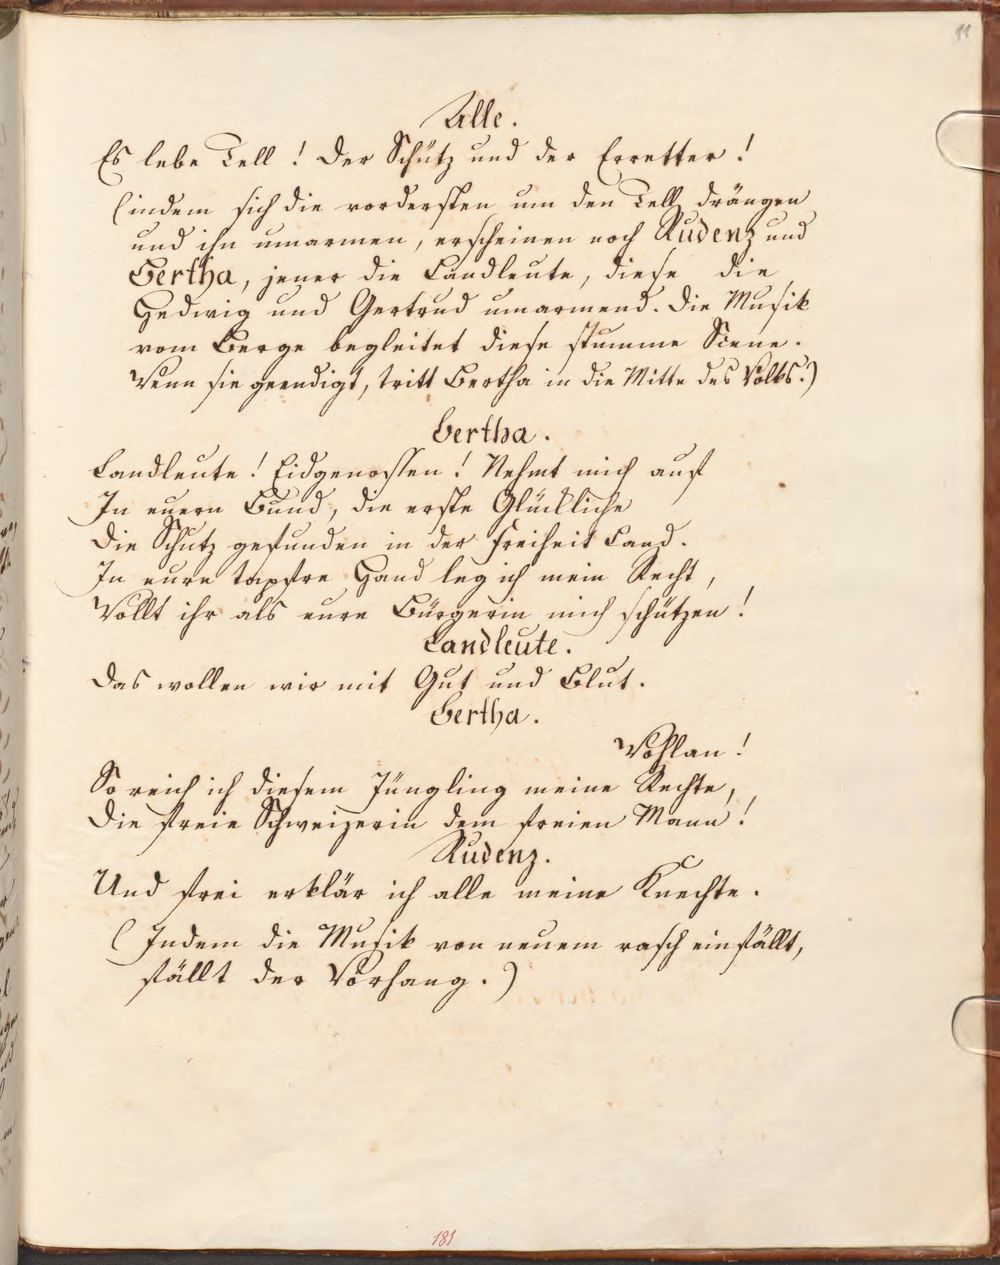 11
Alle.
Es lebe Tell! Der Schütz und der Erretter!
(indem sich die vordersten um den Tell drängen
und ihn umarmen, erscheinen noch Rudenz und
Bertha, jener die Landleute, diese die
Hedwig und Gertrud umarmend. Die Musik
vom Berge begleitet diese stumme Scene.
Wenn sie geendigt, tritt Bertha in die Mitte des Volks.)
Bertha.
Landleute! Eidgenossen! Nehmt mich auf
In euern Bund, die erste Glückliche
Die Schutz gefunden in der Freiheit Land.
In eure tapfre Hand leg ich mein Recht,
Wollt ihr als eure Bürgerin mich schützen!
Landleute.
Das wollen wir mit Gut und Blut.
Bertha.
Wohlan!
So reich ich diesem Jüngling meine Rechte,
Die freie Schweizerin dem freien Mann!
Rudenz.
Und frei erklär ich alle meine Knechte.
(Indem die Musik von neuem rasch einfällt,
fällt der Vorhang.)
181